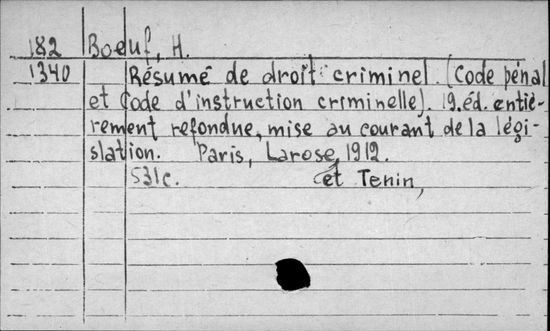 182 Boeuf, H.
1340 Résumé de droit criminel (Code pénal
et Code d'instruction criminelle). 19. éd. entiè-
rement refondue, mise au courant de la légi-
slation. Paris, Larose, 1912.
531c. et Tenin,